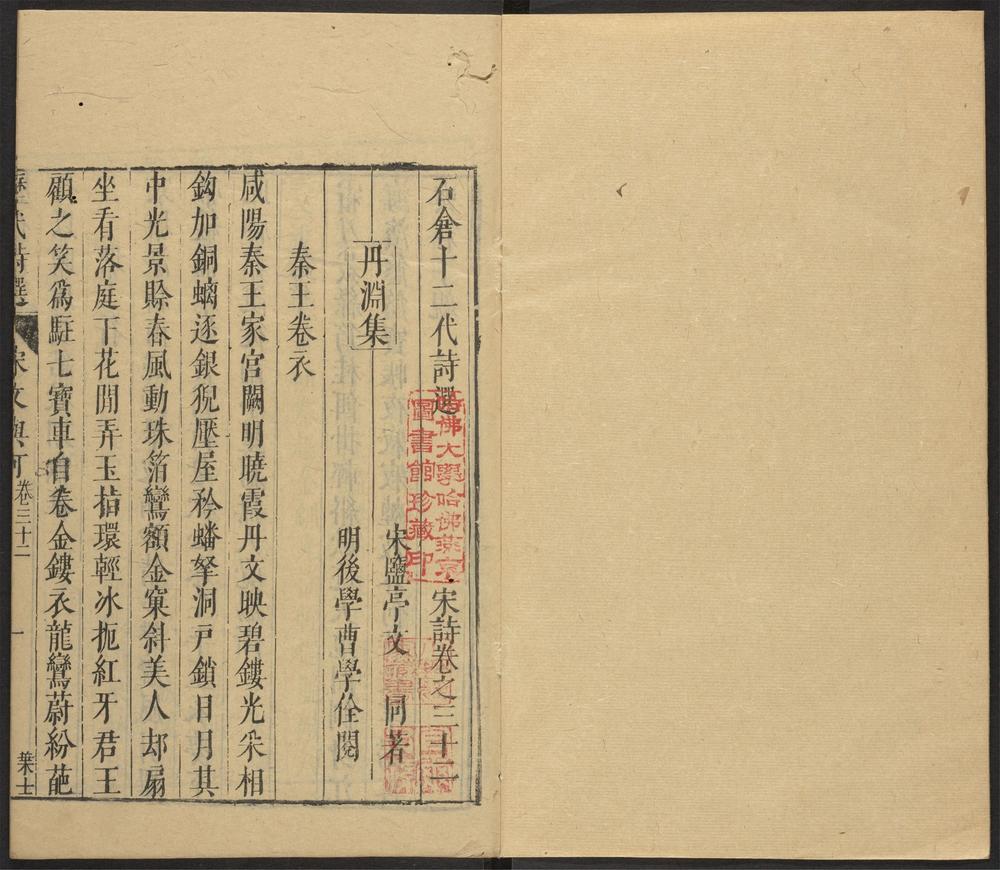 石倉十二代詩選 宋詩卷之三十二
丹淵集
宋鹽亭文 同著
明後學曹學佺閱
秦王卷衣
咸陽秦王家宫闕明曉霞丹文映碧鏤光采相
鈎加銅螭逐銀猊壓屋矜蟠拏洞戸鎖日月其
中光景賒春風動珠箔鸞額金窠斜美人却扇
坐看落庭下花閒弄玉指環輕冰扼紅牙君王
顧之笑爲駐七寶車自卷金鏤衣龍鸞蔚紛葩
歷代詩選 宋文與可 卷三十二 一 葉士
哈佛大學哈佛燕京
圖書館珍藏印